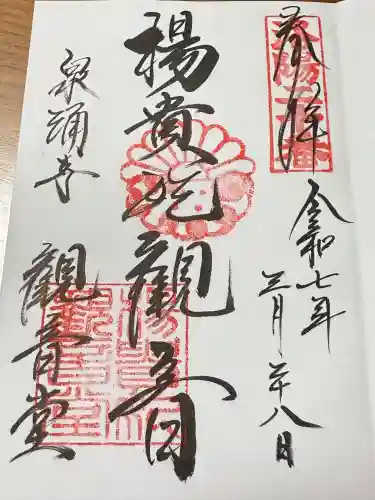 奉拝
令和七年
三月二十八日
楊貴妃観音
泉涌寺
観音堂